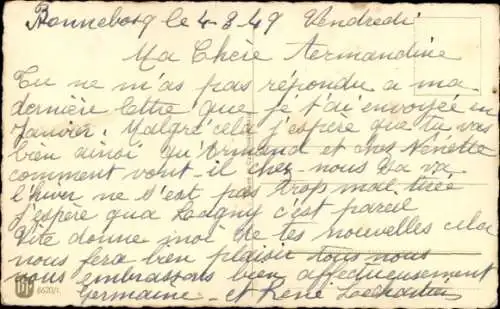 Bonnebosq le 4-3-49 Vendredi
Ma Chère Armandine
Tu ne m'as pas répondu a ma
dernière lettre que je t'ai envoyée en
Janvier. Malgré cela j'espère que tu vas
bien ainsi qu'Armand et chez Nenette
comment vont-il chez-nous sa va
l'hiver ne s'est pas trops mal tiré
j'espère qua Lacgny c'est pareil
Vite donne moi de tes nouvelles cela
nous fera bien plaisir tous nous
vous embrassons bien affectueusement
Germaine et René
6620/1.